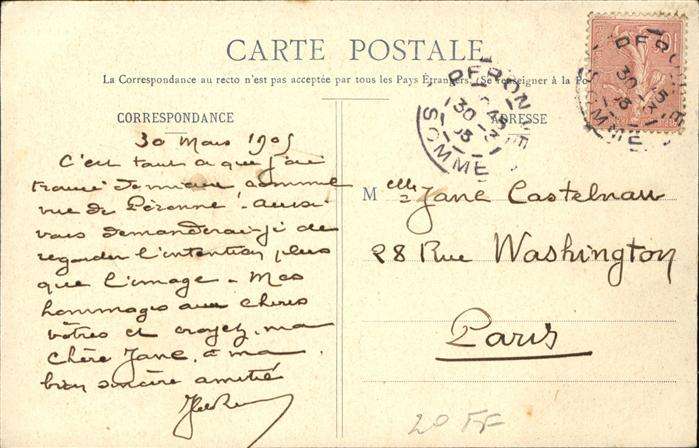 CARTE POSTALE
La Correspondance au recto n'est pas acceptée par tous les Pays Étrangers. (Se renseigner à la Po
CORRESPONDANCE
ADRESSE
PERONNE
30 -3
05
SOMME
PERONNE
30 -3
05
SOMME
30 Mars 1905
C'est tout ce que j'ai
trouvé de mieux comme
vue de Péronne. Aussi
vous demanderai-je de
regarder l'intention plus
que l'image - Mes
hommages aux chères
vôtres et croyez, ma
chère Jane, à ma
bien sincère amitié
Melle Jane Castelnau
28 Rue Washington
Paris
20 FF